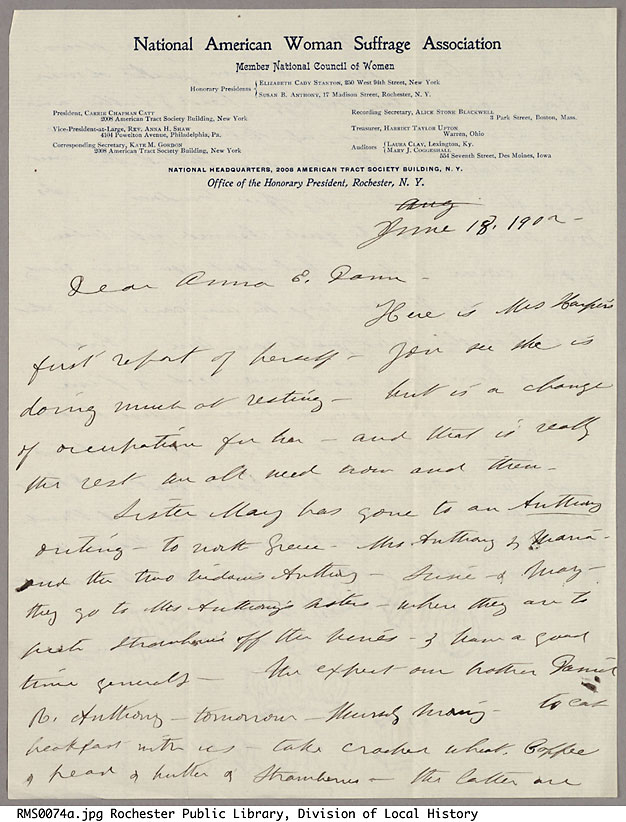 National American Woman Suffrage Association
Member National Council of Women
Honorary Presidents { Elizabeth Cady Stanton, 250 West 94th Street, New York
Susan B. Anthony, 17 Madison Street, Rochester, N. Y.
President, Carrie Chapman Catt
2008 American Tract Society Building, New York
Vice-President-at-Large, Rev. Anna H. Shaw
Powelton Avenue, Philadelphia, Pa.
Corresponding Secretary, Kate M. Gordon
2008 American Tract Society Building, New York
Recording Secretary, Alice Stone Blackwell
3 Park Street, Boston, Mass.
Treasurer, Harriet Taylor Upton
Warren, Ohio
Auditors { Laura Clay, Lexington, Ky.
Mary J. Coggeshall
554 Seventh Street, Des Moines, Iowa
NATIONAL HEADQUARTERS, 2008 AMERICAN TRACT SOCIETY BUILDING, N. Y.
Office of the Honorary President, Rochester, N. Y.
Aug
June 18, 1902-
Dear Anna E. Dann -
Here is Mrs Harper's
first report of herself - You see she is
doing much at resting - but is a change
of occupation for her - and that is really
the rest we all need now and then -
Sister Mary has gone to an Anthony
outing - to north Greece - Mrs Anthony &
and the two Anthony - Susie & Mary -
they go to Mrs Anthony's sisters - where they are to
pick strawberries off the vines - & have a good
time generally - We expect our brother Daniel
R. Anthony - tomorrow - Thursday morning - to eat
breakfast with us - take cracked wheat, Coffee
& bread & butter & strawberries - the latter are
RMS0074a.jpg Rochester Public Library, Division of Local History